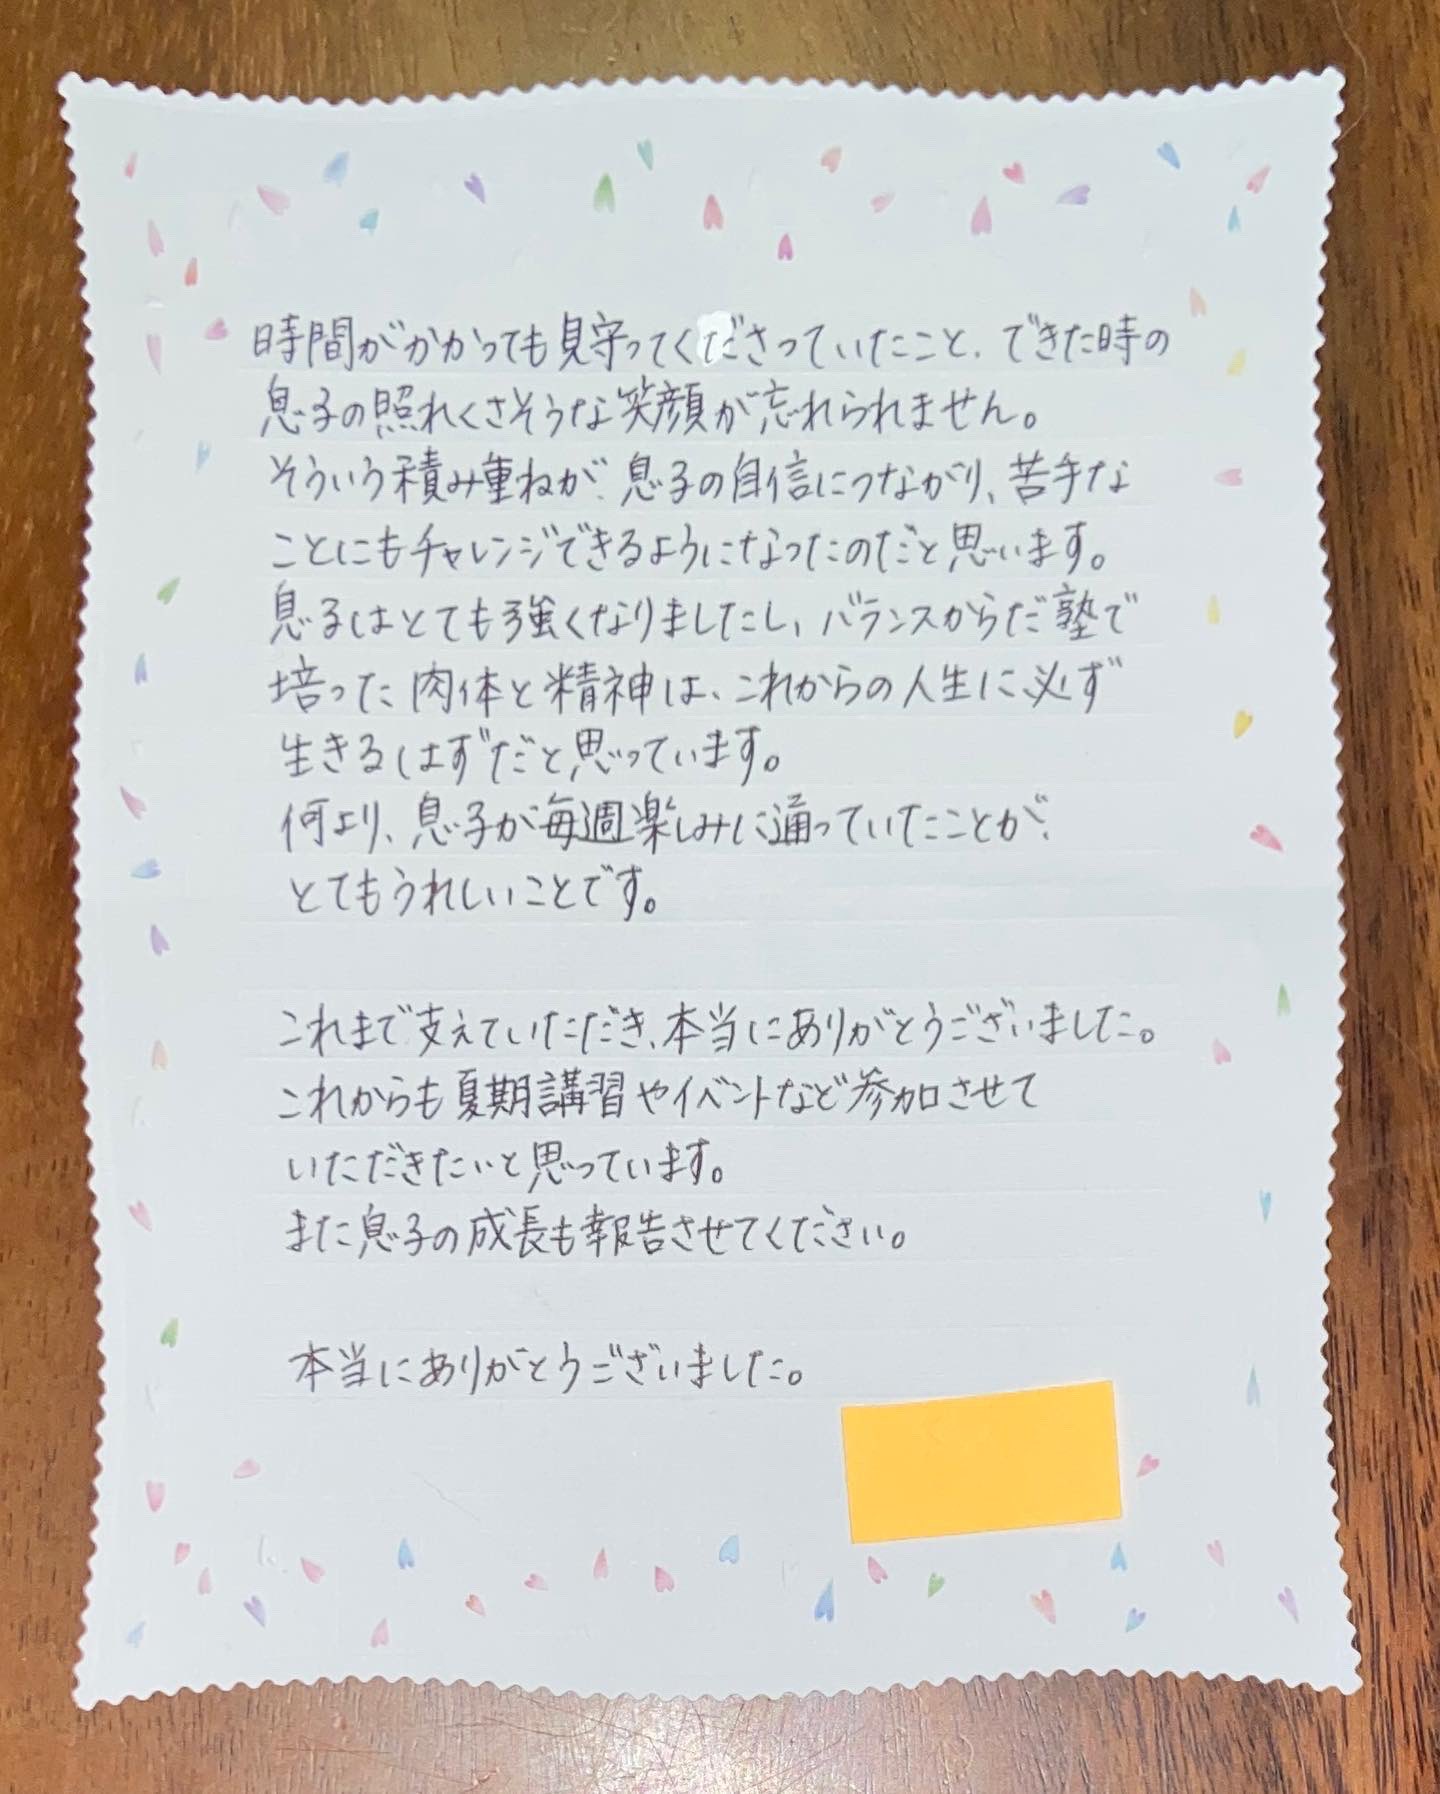 時間がかかっても見守ってくださっていたこと、できた時の
息子の照れくさそうな笑顔が忘れられません。
そういう積み重ねが、息子の自信につながり、苦手な
ことにもチャレンジできるようになったのだと思います。
息子はとても強くなりましたし、バランスからだ塾で
培った肉体と精神は、これからの人生に必ず
生きるはずだと思っています。
何より、息子が毎週楽しみに通っていたことが、
とてもうれしいことです。
これまで支えていただき、本当にありがとうございました。
これからも夏期講習やイベントなど参加させて
いただきたいと思っています。
また息子の成長も報告させてください。
本当にありがとうございました。